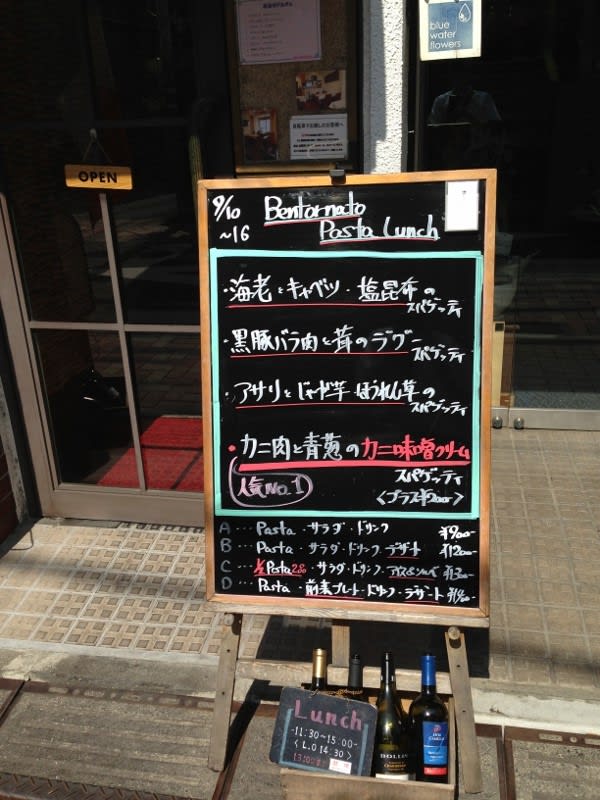 blue
water
flowers
OPEN
9/10
~16
Bentornato
Pasta Lunch
・海老とキャベツ・塩昆布の
スパゲッティ
・黒豚バラ肉と茸のラグー
スパゲッティ
・アサリとじゃが芋 ほうれん草の
スパゲッティ
・カニ肉と青葱のカニ味噌クリーム
スパゲッティ
人気No.1
<プラス¥200->
A … Pasta・サラダ・ドリンク ¥900-
B … Pasta・サラダ・ドリンク・デザート ¥1200-
C … ½Pasta2皿・サラダ・ドリンク・
D … Pasta・前菜プレート・ドリンク・デザート
Lunch
-11:30~15:00-
<L.O 14:30>